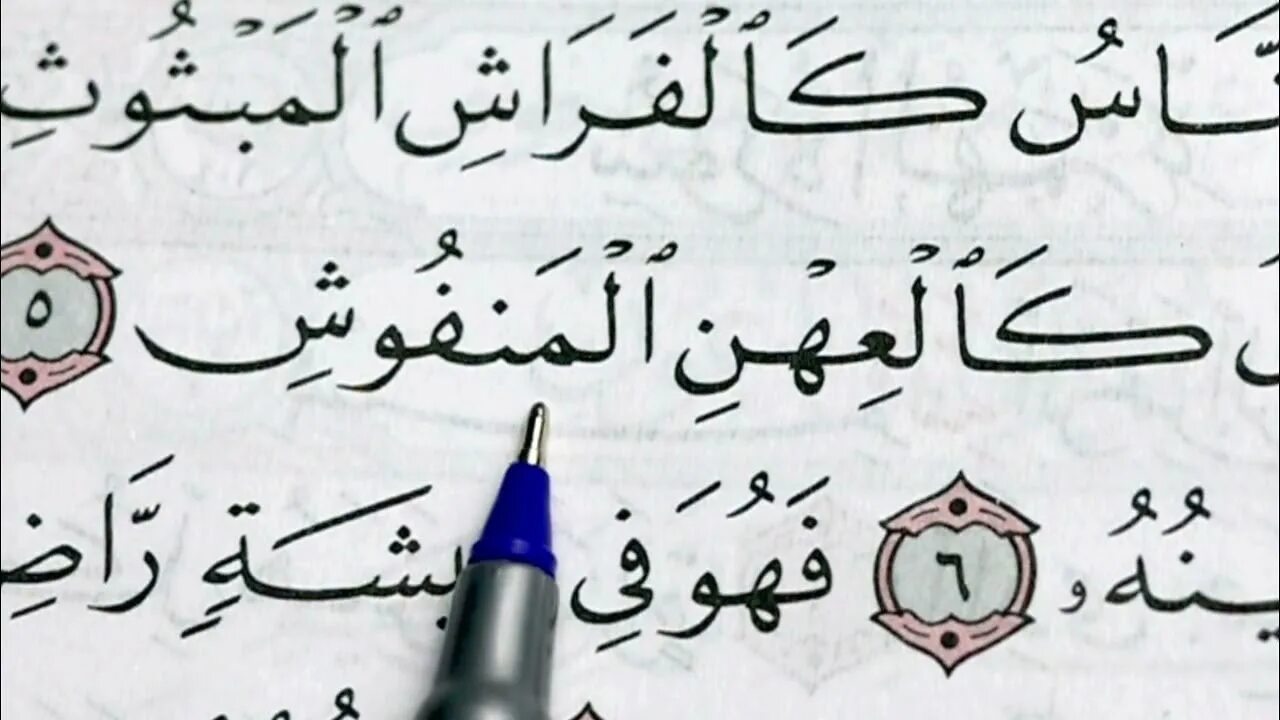 ـنَّاسُ كَٱلْفَرَاشِ ٱلْمَبْثُوثِ
كَٱلْعِهْنِ ٱلْمَنفُوشِ ٥
ـينُهُۥ ٦ فَهُوَ فِى ـيشَةٍ رَّاضِـ